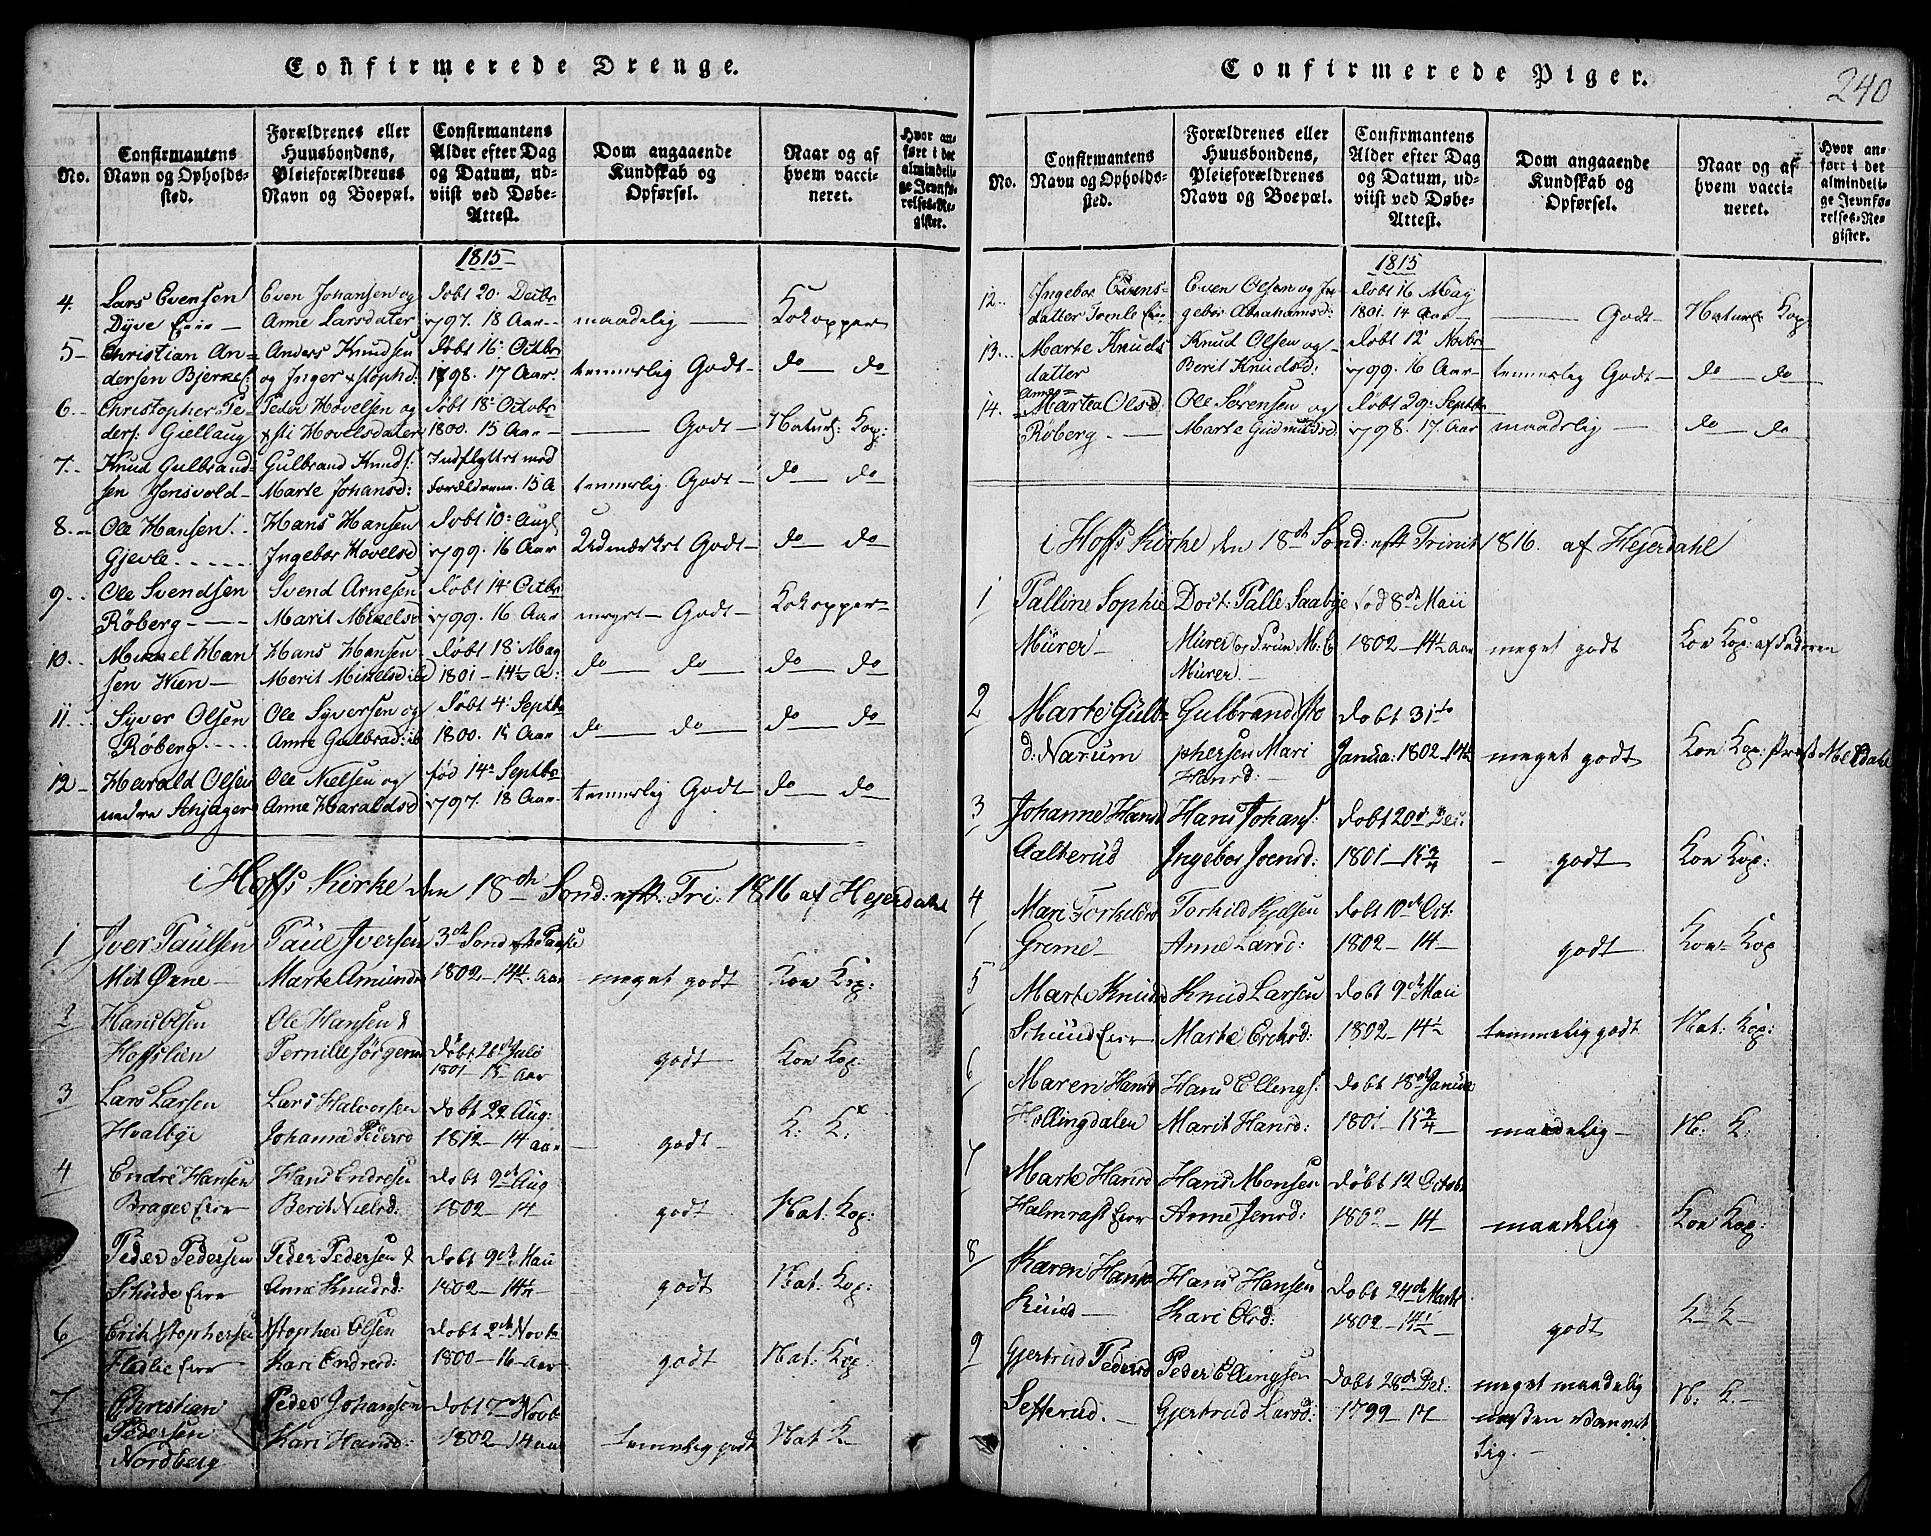 Confirmerede Drenge.
No.
Confirmantens
Navn og Opholds-
sted.
Forældrenes eller
Huusbondens,
Pleieforældrenes
Navn og Boepæl.
Confirmantens
Alder efter Dag
og Datum, ud-
viist ved Døbe-
Attest.
Dom angaaende
Kundskab og
Opførsel.
Naar og af
hvem vacci-
neret.
Hvor an-
ført i det
almindeli-
ge Jevnfø-
relses-Re-
gister.
1815
4.
Lars Evensen
Dÿve Eier —
Even Johansen og
Anne Larsdater
døbt 20. Decbr
1797. 18 Aar
maadelig —
Kokopper
5
Christian An-
dersen Bjerkes:
Anders Knudsen
og Inger
døbt 16. Octbr
1798. 17 Aar.
temmelig Godt
do do
6.
Christopher Pe-
ders: Giellaug
Peder Hovelsen og
Hovelsdater
døbt 18. Octobr
1800. 15 Aar
— Godt —
Naturl: Kop:
7.
Knud Gulbrand-
sen
Gulbrand Knuds:
Marte Johansd:
Indflyttet med
Forældrene. 15 A
temmelig Godt
do do
8.
Ole Hansen
Gjevle
Hans Hansen
Ingebor Hovelsd
døbt 10. Aug
1799. 16 Aar
Udmærket Godt
do do
9
Ole Svendsen
Røberg
Svend Arnesen
Marit Mikelsd
døbt 14 Octbr
1799. 16 Aar
meget — Godt —
Kokopper
10.
Mikkel Han
sen Wien —
Hans Hansen
Merit Mikelsd
døbt 18. May
1801 — 14½ A:
do do do
do do
11.
Syver Olsen
Røberg
Ole Syversen og
Anne Gulbrad:
døbt 4. Septbr
1800. 15 Aar
do do do
do do
12
Harald Olsen
nedre
Ole Nielsen og
Anne Haraldsd
fød 14. Septbr
1797. 18 Aar
temmelig Godt
do do
i Hoffs Kirke den 18de Sønd: eft: Tri: 1816 af Hejerdahl
1
Iver Paulsen
Mit Øvne —
Paul Iversen
Marte Amunds
3de Sønd eft Paaske
1802 — 14¼ Aar
meget godt
Kou Kop:
2
Hans Olsen
Hoffslien
Ole Hansen &
Pernille Jørgens
døbt 26de Juli
1801 — 15 Aar
godt
Kou Kop:
3
Lars Larsen
Hvalbye
Lars Halvorsen
Johanne Pedersd
døbt 22 Aug:
1812 — 14 Aar
godt
K: K:
4
Endre Hansen
Brages Eier
Hans Endresen
Berit Nielsd:
døbt 9de Aug
1802 — 14
godt
Nat: Kop:
Peder Pedersen
Skude Eier
Peder Pedersen &
Anne Knudsd:
døbt 9de Maii
1802 — 14¼
godt
Nat: Kop:
6
Erik Stophersen
Eier
Stopher Olsen
Kari Endresd:
døbt 2de Novbr
1800 — 16 Aar
godt
Nat: Kop:
7
Christian
Pedersen
Nordberg
Peder Johansen
Kari Hansd:
døbt 7de Novb
1802 — 14 aar
temmelig godt
Nat K —
Confirmerede Piger.
240
No.
Confirmantens
Navn og Opholds-
sted.
Forældrenes eller
Huusbondens,
Pleieforældrenes
Navn og Boepæl.
Confirmantens
Alder efter Dag
og Datum, ud-
viist ved Døbe-
Attest.
Dom angaaende
Kundskab og
Opførsel.
Naar og af
hvem vacci-
neret.
Hvor an-
ført i det
almindeli-
ge Jevnfø-
relses-Re-
gister.
1815
12.
Ingebor Evens-
datter
Even Olsen og In
gebor Abrahamsd:
døbt 16 May
1801. 14 Aar
— Godt
Naturl: Kop:
13.
Marte Knuds
datter
Knud Olsen og
Berit Knudsd:
døbt 12 Novbr
1799. 16 Aar
temmelig Godt
do do
14.
Anne
Martea Olsd
Røberg
Ole Sørensen og
Marte Gudmundsd
døbt 29. Septbr
1798. 17. Aar
maadelig —
do do
i Hoffs Kirke den 18de Sønd: eft Trinit 1816. af Hejerdahl
1
Palline Sophie
Mürer
Doct: Palle Saabye
Mürer og Frue M: C
Mürer
fød 8de Maii
1802 — 14½ Aar
meget godt
Kou Kop: af Faderen
2
Marte Gulb
d: Narum
Gulbrand Sto
phersen Mari
Hansd:
døbt 31te
Janua: 1802 — 14¾
meget godt
Kou Kop:
3
Johanne Hansd
Aalberud
Hans Johans:
Ingebor Joensd:
døbt 20de Dec:
1801 — 15¾
godt
Kou Kop:
4
Mari Torkildsd
Greme
Torkild Kjelsen
Anne Larsd:
døbt 10de Oct:
1802 — 14 —
godt
Kou Kop
5
Marte Knudsd
Skuud Eier
Knud Larsen
Marte Erichsd:
døbt 9de Maii
1802 — 14½
temmelig godt
Nat: Kop:
6
Maren Hansd
Hollingdalen
Hans Ellings:
Marit Hansd:
døbt 18de Janua
1801 — 15¾
maadelig —
N: K:
7
Marte Hansd
Halmrast Eier
Hans Monsen
Anne Jensd:
døbt 12 Octobr
1802 — 14 —
maadelig
Kou Kop:
8
Karen Hansd
Hans Hansen
Kari Olsd:
døbt 24de Marts
1802 — 14½
godt
K — K —
9
Gjertrud Pedersd
Setterud.
Peder Ellingsen
Gjertrud Larsd:
døbt 28de Dec:
1799 — 17
meget maadelig
næsten
lig. —
N: K. —